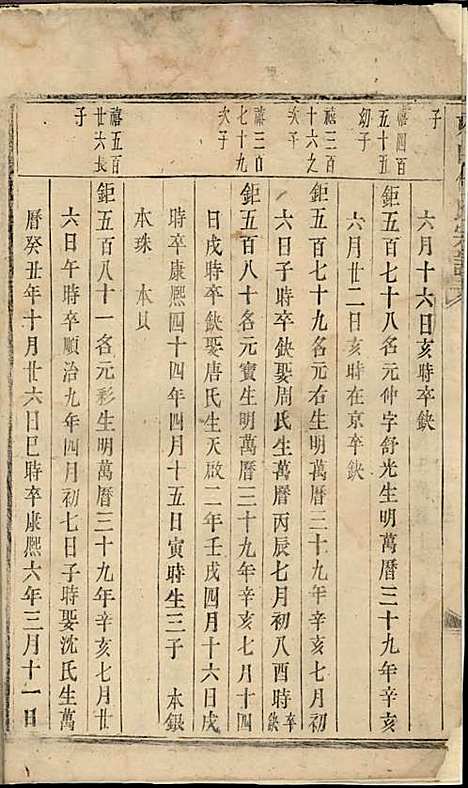 氏宗譜
子
六月十六日亥時卒缺
禧四百
五十五
幼子
鉅五百七十八名元仲字舒光生明萬曆三十九年辛亥
六月廿二日亥時在京卒缺
禧三百
十六之
次子
鉅五百七十九名元右生明萬曆三十九年辛亥七月初
六日子時卒缺娶周氏生萬曆丙辰七月初八酉時卒缺
禧三百
七十九
次子
鉅五百八十名元寶生明萬曆三十九年辛亥七月十四
日戌時卒缺娶唐氏生天啟二年壬戌四月十六日戌
時卒康熙四十四年四月十五日寅時生三子 本銀
本珠 本貝
禧五百
廿六長
子
鉅五百八十一名元彩生明萬曆三十九年辛亥七月廿
六日午時卒順治九年四月初七日子時娶沈氏生萬
曆癸丑年十月廿六日巳時卒康熙六年三月十一日